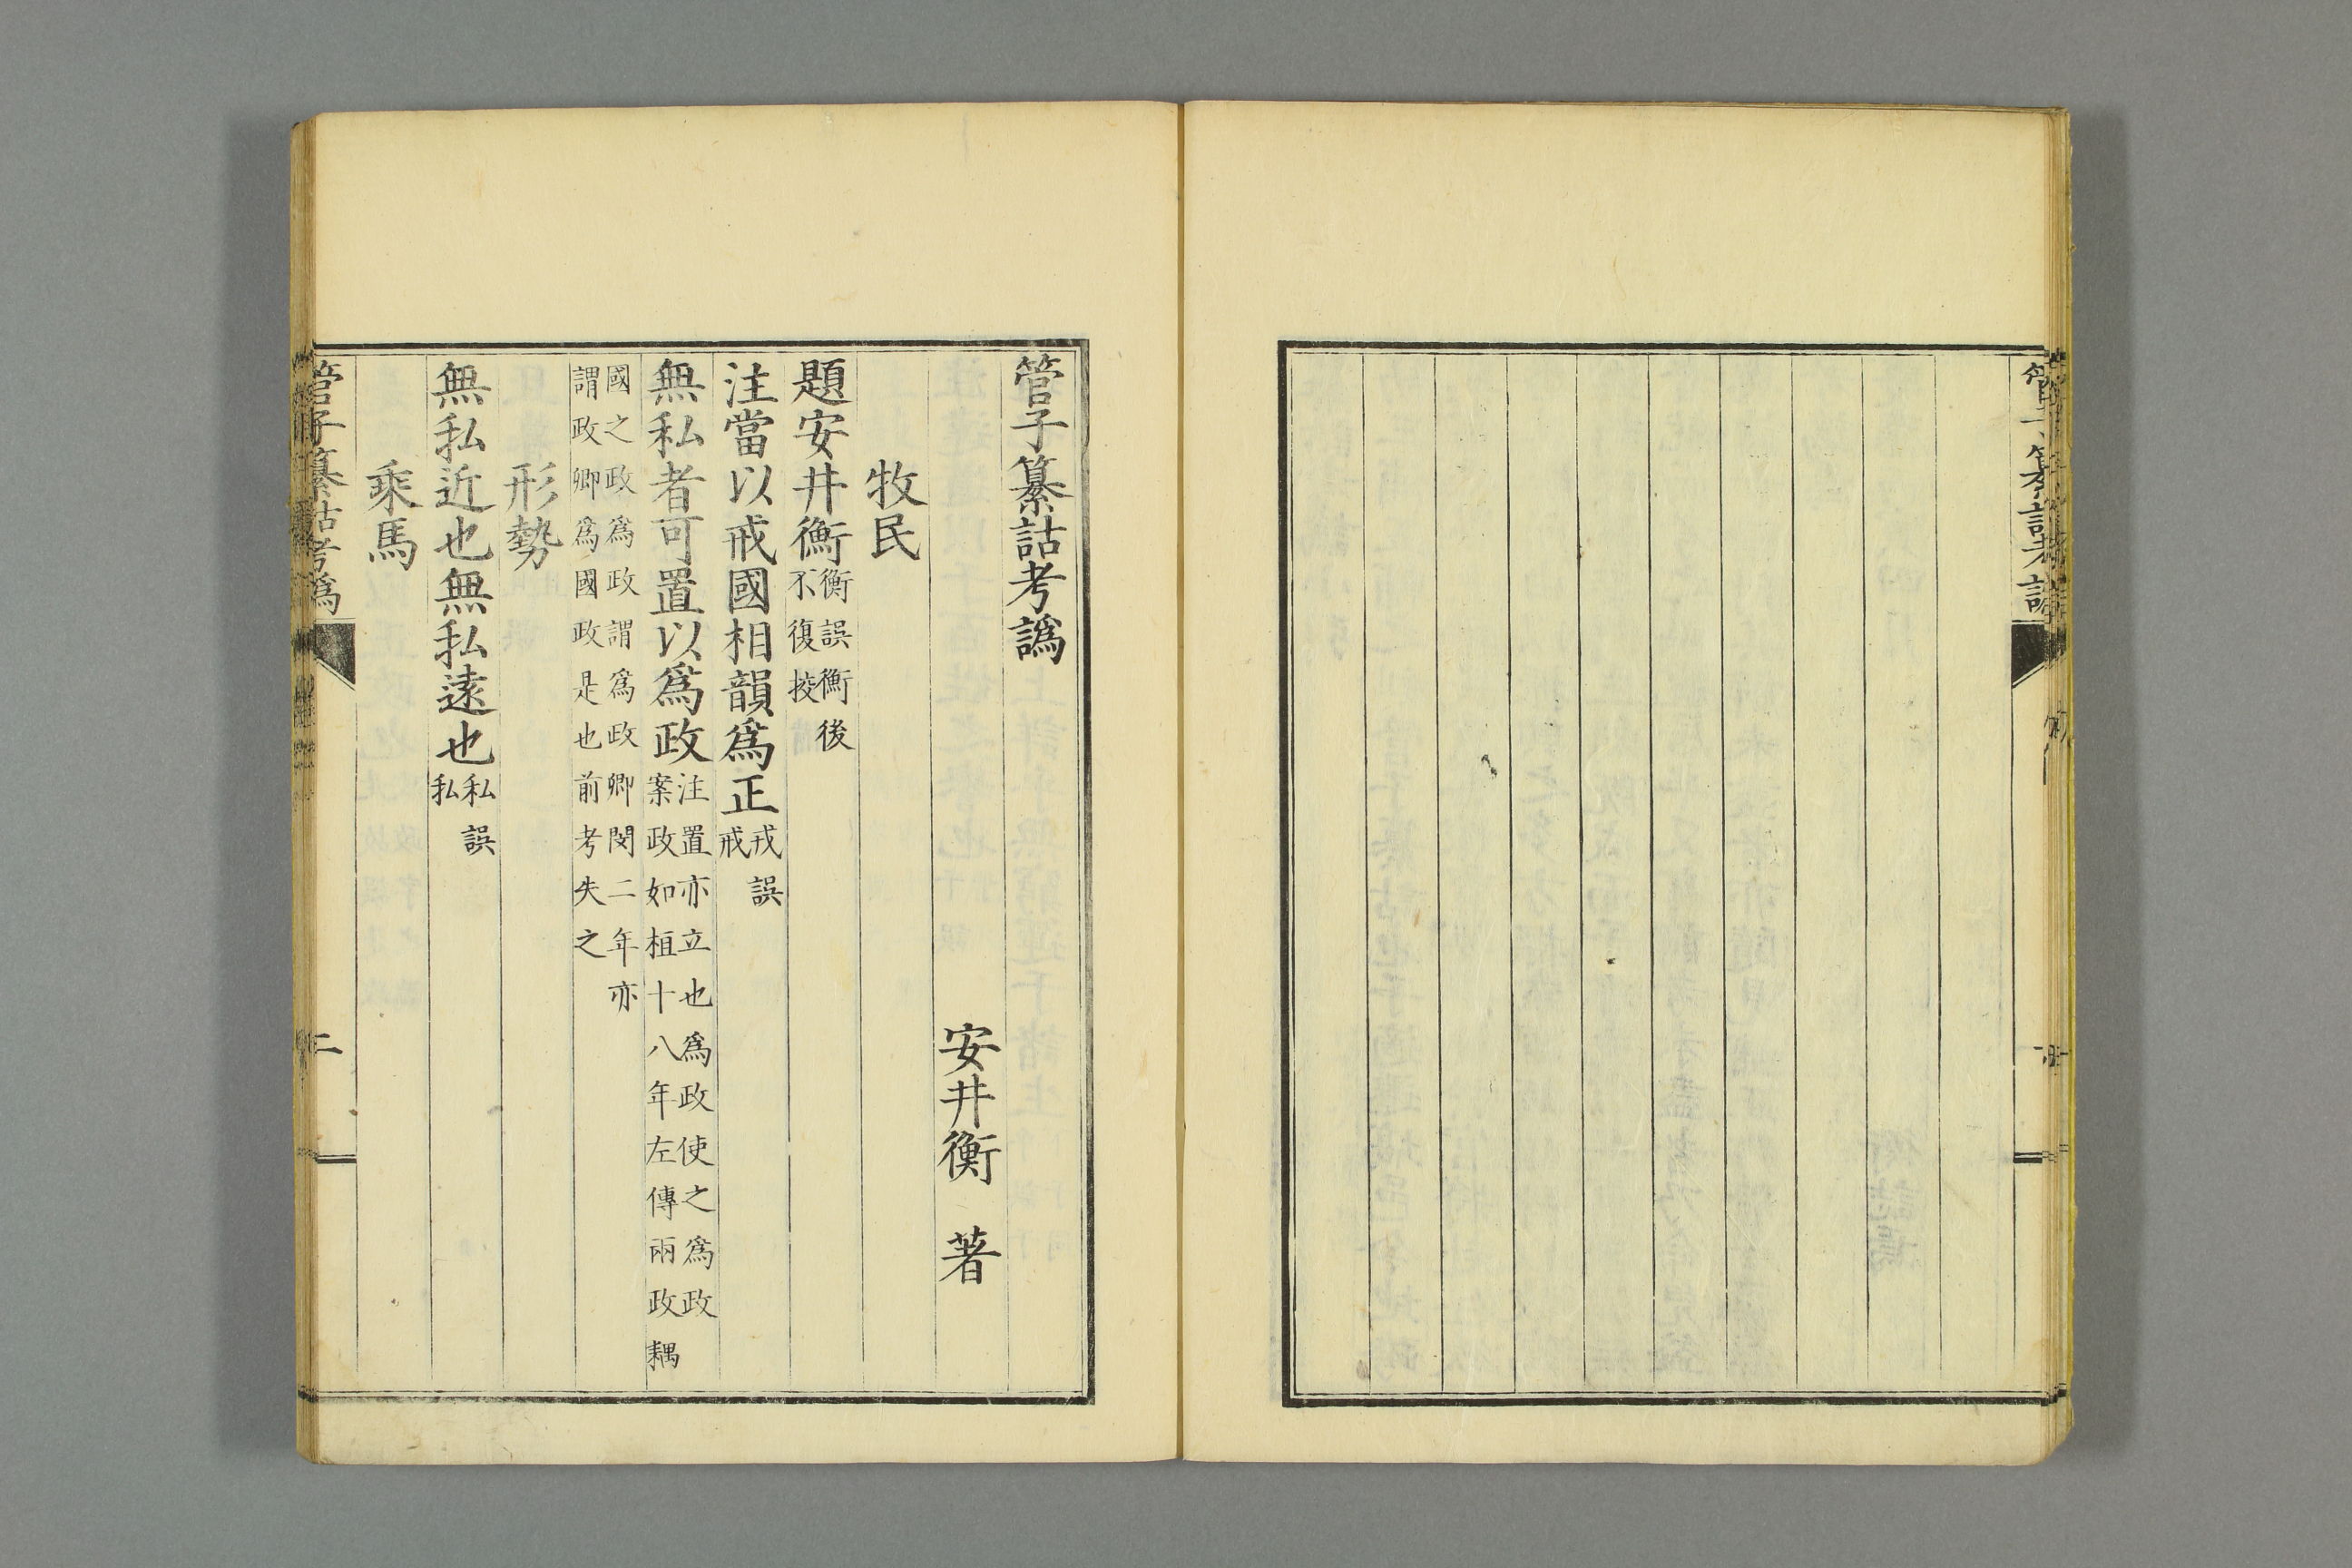 管子纂詁考譌
管子纂詁考譌
安井衡　著
牧民
題安井衡衡誤衡後不復挍
注當以戒國相韻爲正戎誤戒
無私者可置以爲政注置亦立也爲政使之爲政案政如桓十八年左傳兩政耦
國之政爲政謂爲政卿閔二年亦謂政卿爲國政是也前考失之
形勢
無私近也無私遠也私誤私
乘馬
管子纂詁考爲
二